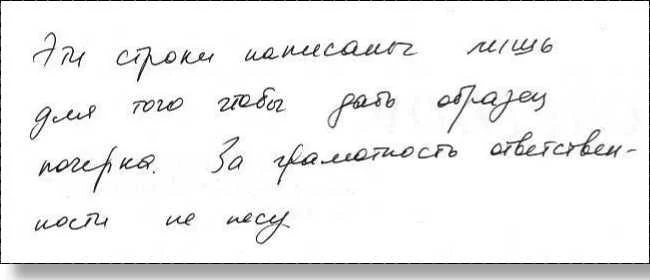 Эти строки написаны лишь
для того чтобы дать образец
почерка. За грамотность ответствен-
ности не несу